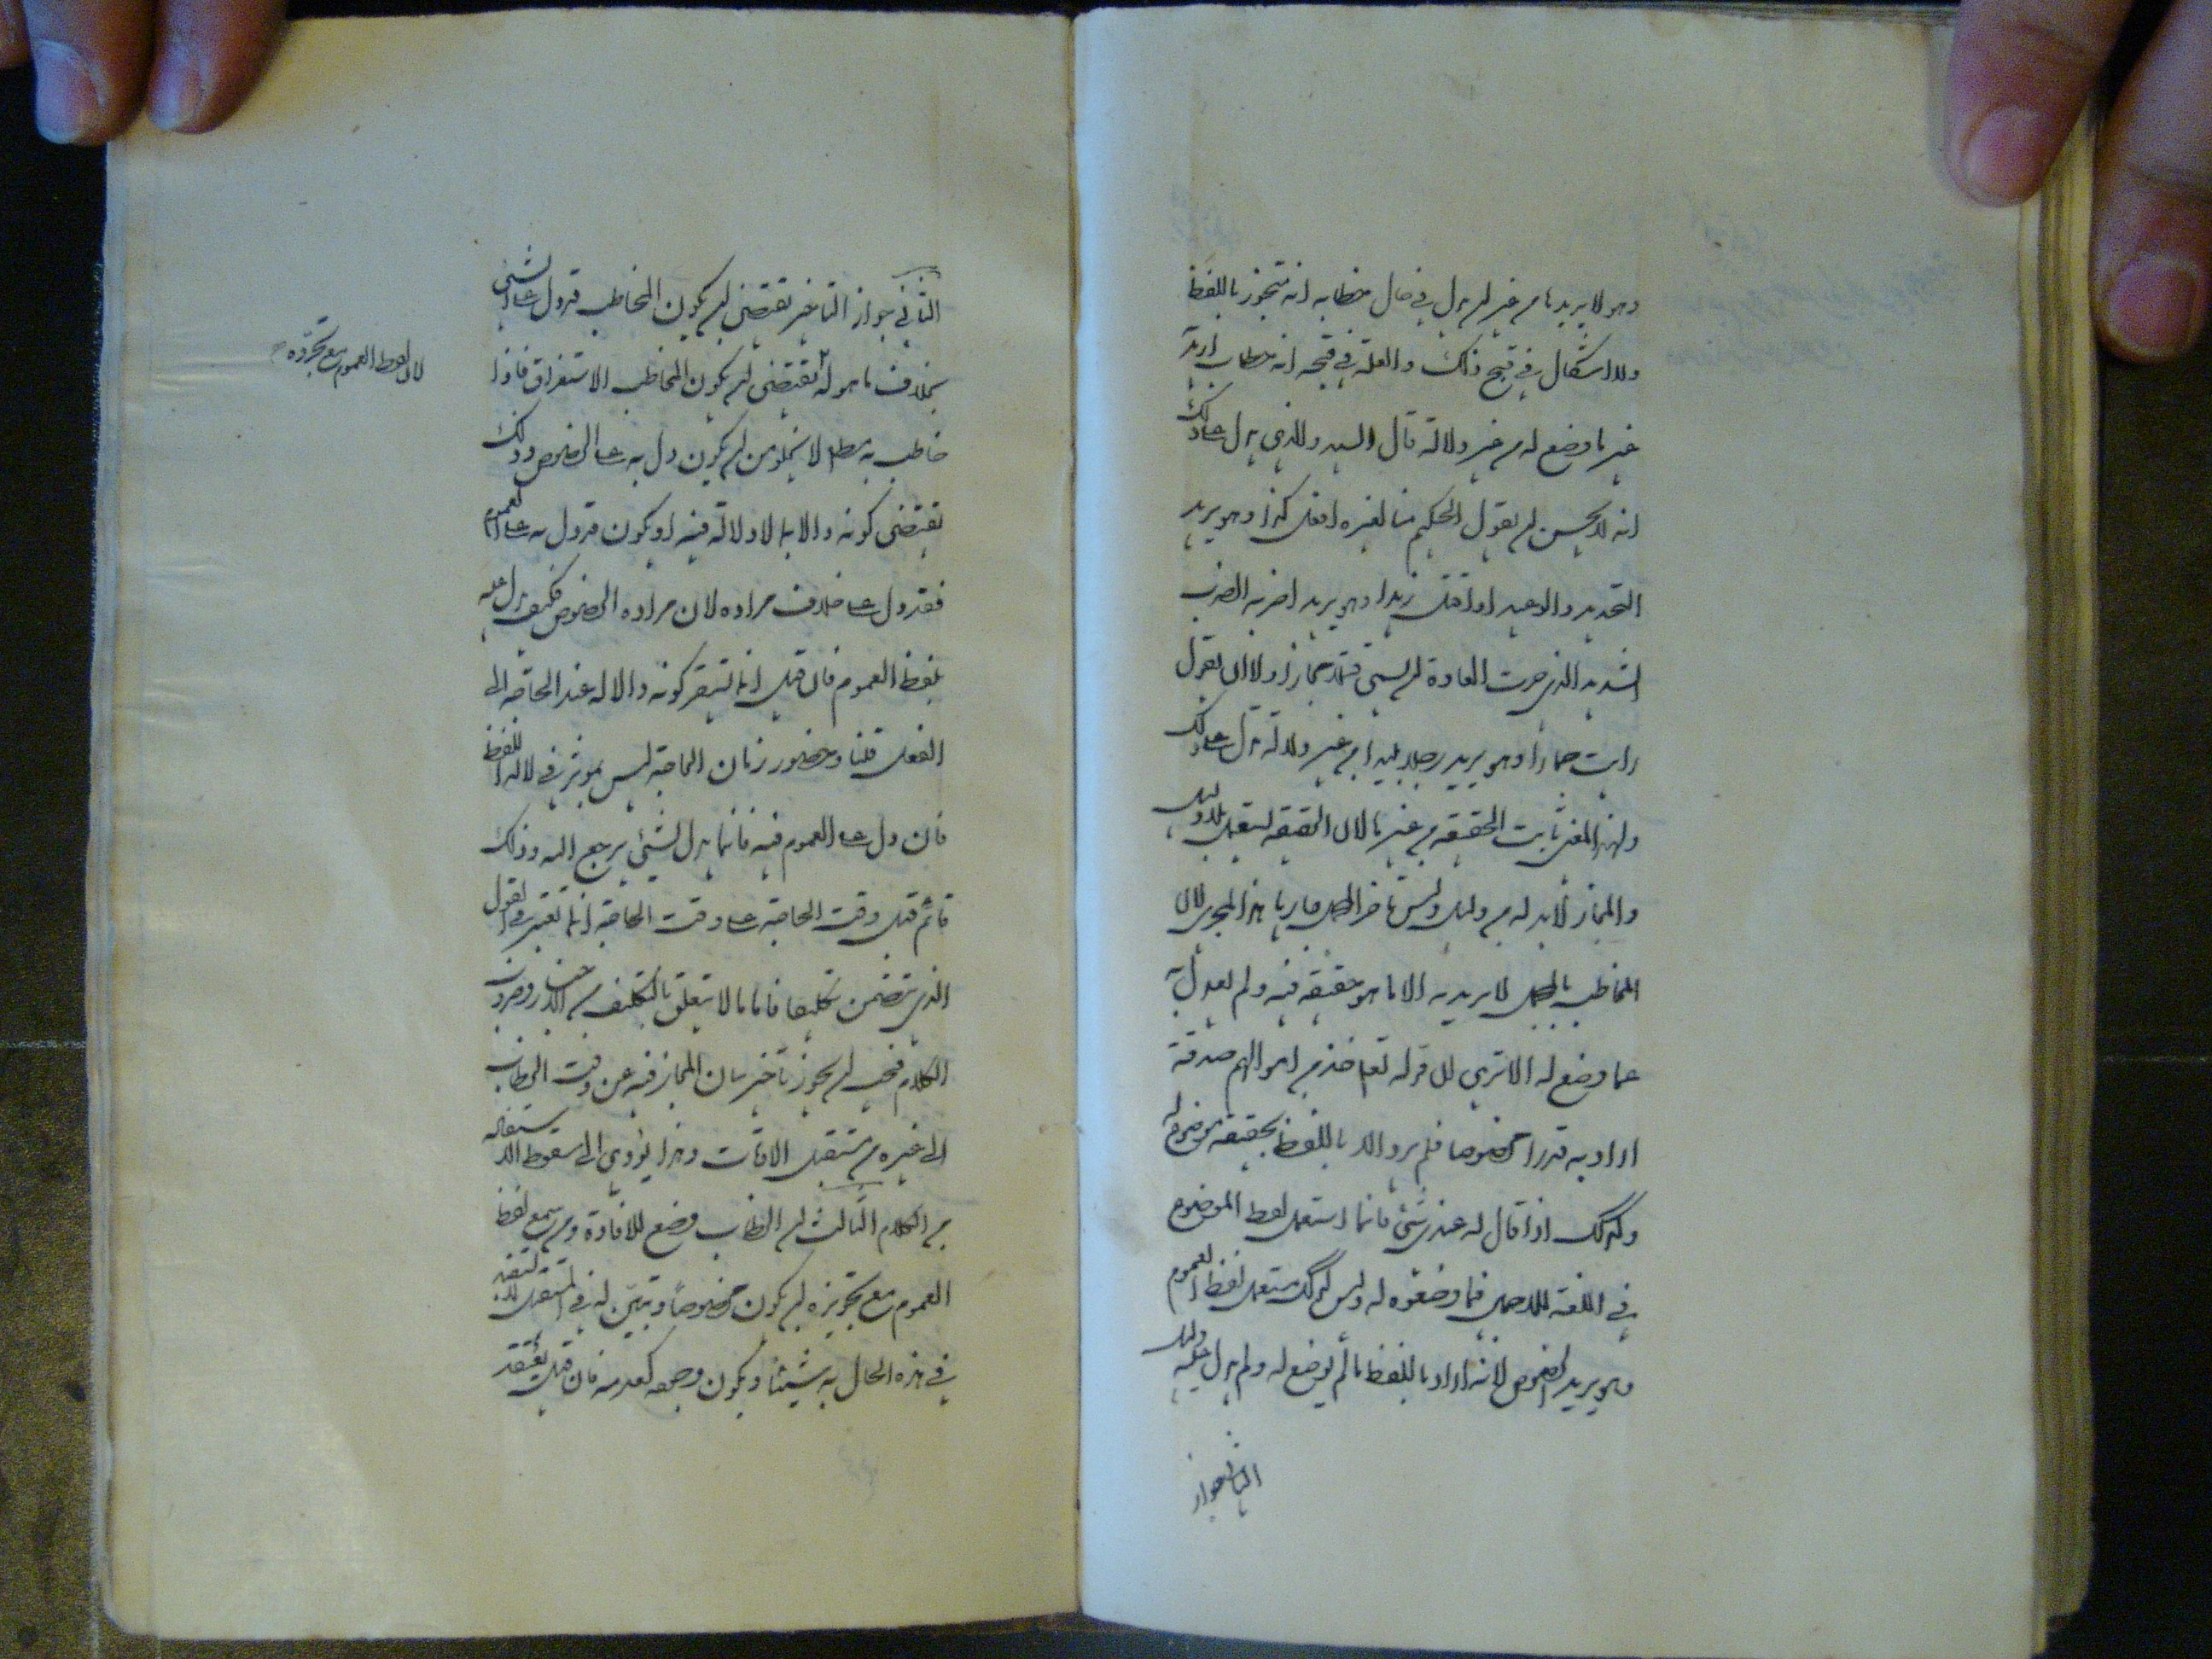 وهو لا يريدها من غير ان يدل في حال خطابه انه متجوز باللفظ
ولا اشكال في قبح ذلك والعلة في قبحه انه خطاب اريد به
غير ما وضع له من غير دلالة قال السيد والذي يدل على ذلك
انه لا يحسن ان يقول الحكيم منا لغيره افعل كذا وهو يريد
التهديد والوعيد او اقتل زيدا وهو يريد اضربه الضرب
الشديد الذي جرت العادة ان يسمى قتلا مجازا ولا ان يقول
رايت حمارا وهو يريد رجلا بليدا من غير دلالة تدل على ذلك
ولهذا المعنى بانت الحقيقة من غيرها لان الحقيقة تستعمل بلا دليل
والمجاز لا بد له من دليل وليس تاخير المجمل جاريا هذا المجرى لان
المخاطب بالمجمل لا يريد به الا ما هو حقيقة فيه ولم يعدل به
عما وضع له الا ترى ان قوله تعالى خذ من اموالهم صدقة
اراد به قدرا مخصوصا فلم يرد الا ما اللفظ بحقيقته موضوع له
وكذلك اذا قال له عندي شئ فانما استعمل اللفظ الموضوع
في اللغة للاجمال فيما وضعوه له وليس كذلك مستعمل لفظ العموم
وهو يريد الخصوص لانه اراد باللفظ ما لم يوضع له ولم يدل عليه دليل
الثاني جواز
الثاني جواز التاخير يقتضي ان يكون المخاطب قد دل على الشئ
بخلاف ما هو به يقتضي ان يكون المخاطب الاستغراق فاذا
لان لفظ العموم مع تجرده
خاطب به مطلقا لا يخلو من ان يكون دل به على الخصوص وذلك
يقتضي كونه دالا بما لا دلالة فيه او يكون قد دل به على العموم
فقد دل على خلاف مراده لان مراده الخصوص فكيف يدل عليه
بلفظ العموم فان قيل انما يستقر كونه دالا عند الحاجة الى
الفعل قلنا وحضور زمان الحاجة ليس بموثر في دلالة اللفظ
فان دل على العموم فيه فانما يدل لشئ يرجع اليه وذلك
قائم قبل وقت الحاجة على وقت الحاجة انما يعتبر في القول
الذي يتضمن تكليفا فاما ما لا يتعلق بالتكليف من الاخبار وضروب
الكلام فيجب ان يجوز تاخير بيان المجاز فيه عن وقت الخطاب
الى غيره من مستقبل الاوقات وهذا يؤدي الى سقوط الاستفادة
من الكلام الثالث ان الخطاب وضع للافادة ومن سمع لفظ
العموم مع تجويزه ان يكون مخصوصا ويتبين له في المستقبل لا يستفيد
في هذه الحال به شيئا ويكون وجوده كعدمه فان قيل يعتقد